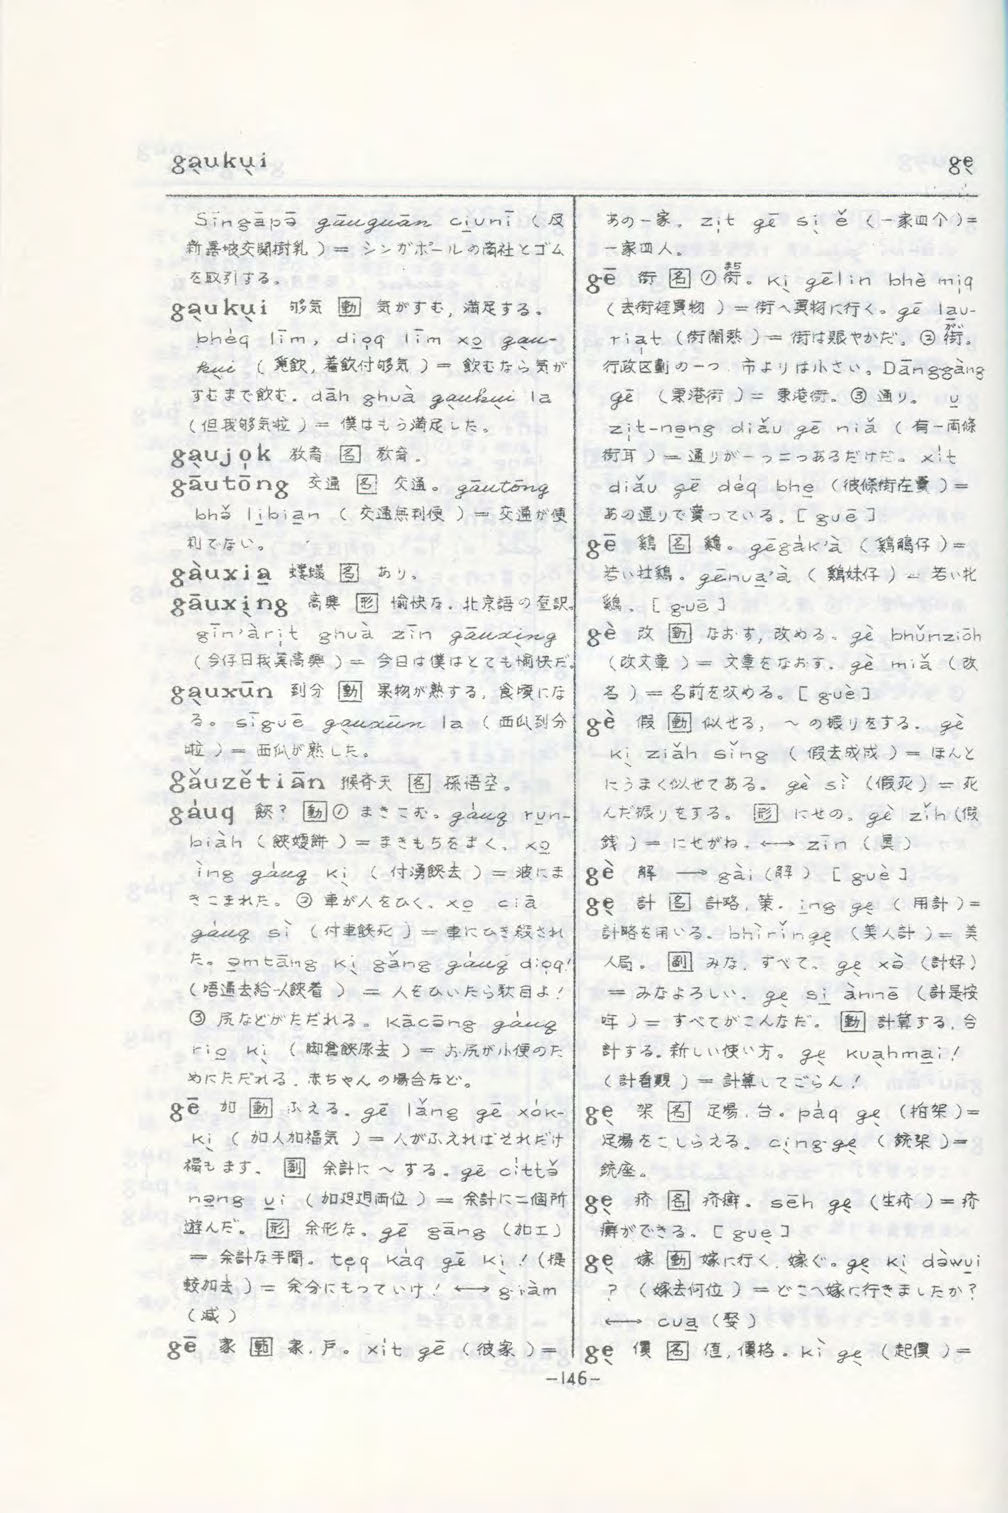 gau̖kui̖
ge̖
Sīngāpō̄ gāuguān ciunī (反
新嘉坡交関樹乳)= シンガポールの商社とゴム
を取引する。
gau̖kui̖ 够気 [動] 気がすむ, 満足する。
bhėq līm, dioq līm xo̲ gau̖-
kui̖ (覓飲, 着飲付够気)= 飲むなら気が
すむまで飲む. dāh ghuà gau̖kui̖ la
(但我够気啦)= 僕はもう満足した。
gau̖jok 教育 [名] 教育。
gāutōng 交通 [名] 交通。gāutōng
bhə̌ li̲bia̲n (交通無利便)= 交通が便
利でない。
gàuxia̲ 蟻 [名] あり。
gāuxi̖ng 高興 [形] 愉快な. 北京語の直訳。
gīn'àri̍t ghuà zīn gāuxi̖ng
(今仔日我真高興)= 今日は僕はとても愉快だ。
gau̖xūn 到分 [動] 果物が熟する, 食頃にな
る。sīguē gau̖xūn la (西瓜到分
啦)= 西瓜が熟した。
gǎuzětiān 猴斉天 [名] 孫悟空。
gáuq 鋏? [動]① まきこむ。gáuq run̲-
biàh (鋏餅)= まきもちをまく, xo̲
ìng gáuq ki̖ (付湧鋏去)= 波にま
きこまれた。② 車が人をひく, xo̲ ciā
gáuq sì (付車鋏死)= 車にひき殺され
た。əmtāng ki̖ gǎng gáuq dioq!
(唔通去給人鋏着)= 人をひいたら駄目よ!
③ 尻などがただれる。kācāng gáuq
rio̲ ki̖ (脚倉鋏尿去)= お尻が小便のた
めにただれる. 赤ちゃんの場合など。
gē 加 [動] ふえる. gē lǎng gē xók-
ki̖ (加人加福気)= 人がふえればそれだけ
福もます, [副] 余計に～する。gē cíttə̌
nəng u̲i (加迌迌両位)= 余計に二個所
遊んだ。[形] 余形な。gē gāng (加工)
= 余計な手間。teq káq gē ki̖! (提
較加去)= 余分にもっていけ! ⟷ giàm
(減)
gē 家 [動] 家. 戸。xit gē (彼家)=
あの一家。zi̍t gē si̖ ě (一家四个)=
一家四人。
gē 街 [名] ① 街(まち)。ki̖ gēlin bhè miq
(去街裡買物)= 街へ買物に行く。gē lau-
riat (街鬧熱)= 街は賑やかだ。② 街(がい)。
行政区劃の一つ. 市よりは小さい。Dānggàng
gē (東港街)= 東港街。③ 通り。u̲
zi̍t-nəng diǎu gē niǎ (有一両條
街耳)= 通りが一つ二つあるだけだ。xit
diǎu gē déq bhe̲ (彼條街在賣)=
あの通りで賣っている。[guē]
gē 鶏 [名] 鶏。gēgák'à (鶏鵤仔)=
若い牡鶏。gēnua̲'à (鶏妹仔)= 若い牝
鶏. [guē]
gè 改 [動] なおす, 改める。gè bhǔnziōh
(改文章)= 文章をなおす. gè miǎ (改
名)= 名前を改める。[guè]
gè 假 [動] 似せる, ～の振りをする. gè
ki̖ ziǎh sǐng (假去成成)= ほんと
にうまく似せてある。gè sì (假死)= 死
んだ振りをする。[形] にせの。gè zǐh (假
銭)= にせがね. ⟷ zīn (真)
gè 解 → gài (解) [guè]
ge̖ 計 [名] 計略, 策. i̲ng ge̖ (用計)=
計略を用いる. bhìrǐnge̖ (美人計)= 美
人局。[副] みな, すべて, ge̖ xə̀ (計好)
= みなよろしい. ge̖ si̲ ànnē (計是按
哖)= すべてがこんなだ。[動] 計算する, 合
計する. 新しい使い方。ge̖ kuahmai!
(計看覩)= 計算してごらん!
ge̖ 架 [名] 足場, 台。páq ge̖ (拍架)=
足場をこしらえる。ci̖ng-ge̖ (銃架)=
銃座。
ge̖ 疥 [名] 疥癬。sēh ge̖ (生疥)= 疥
癬ができる。[gue̖]
ge̖ 嫁 [動] 嫁に行く, 嫁ぐ。ge̖ ki̖ dǝ̀wu̲i
? (嫁去何位)= どこへ嫁に行きましたか?
⟷ cua̲ (娶)
ge̖ 價 [名] 値, 價格。kì ge̖ (起價)=
-146-